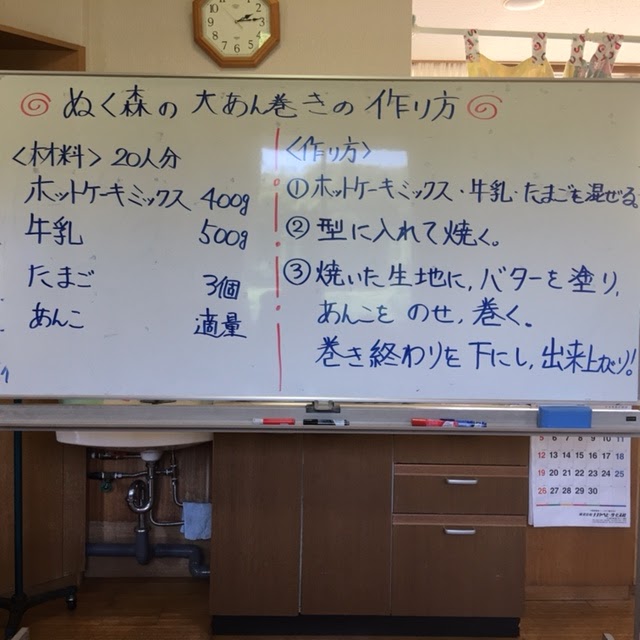 ぬく森の 大あん巻きの 作り方
<材料> 20人分
ホットケーキミックス 400g
牛乳 500g
たまご 3個
あんこ 適量
<作り方>
① ホットケーキミックス・牛乳・たまごを混ぜる。
② 型に入れて焼く。
③ 焼いた生地に, バターを塗り,
あんこを のせ, 巻く。
巻き終わりを下にし, 出来上がり!
5 6 7 8 9 10 11
12 13 14 15 16 17 18
19 20 21 22 23 24 25
26 27 28 29 30